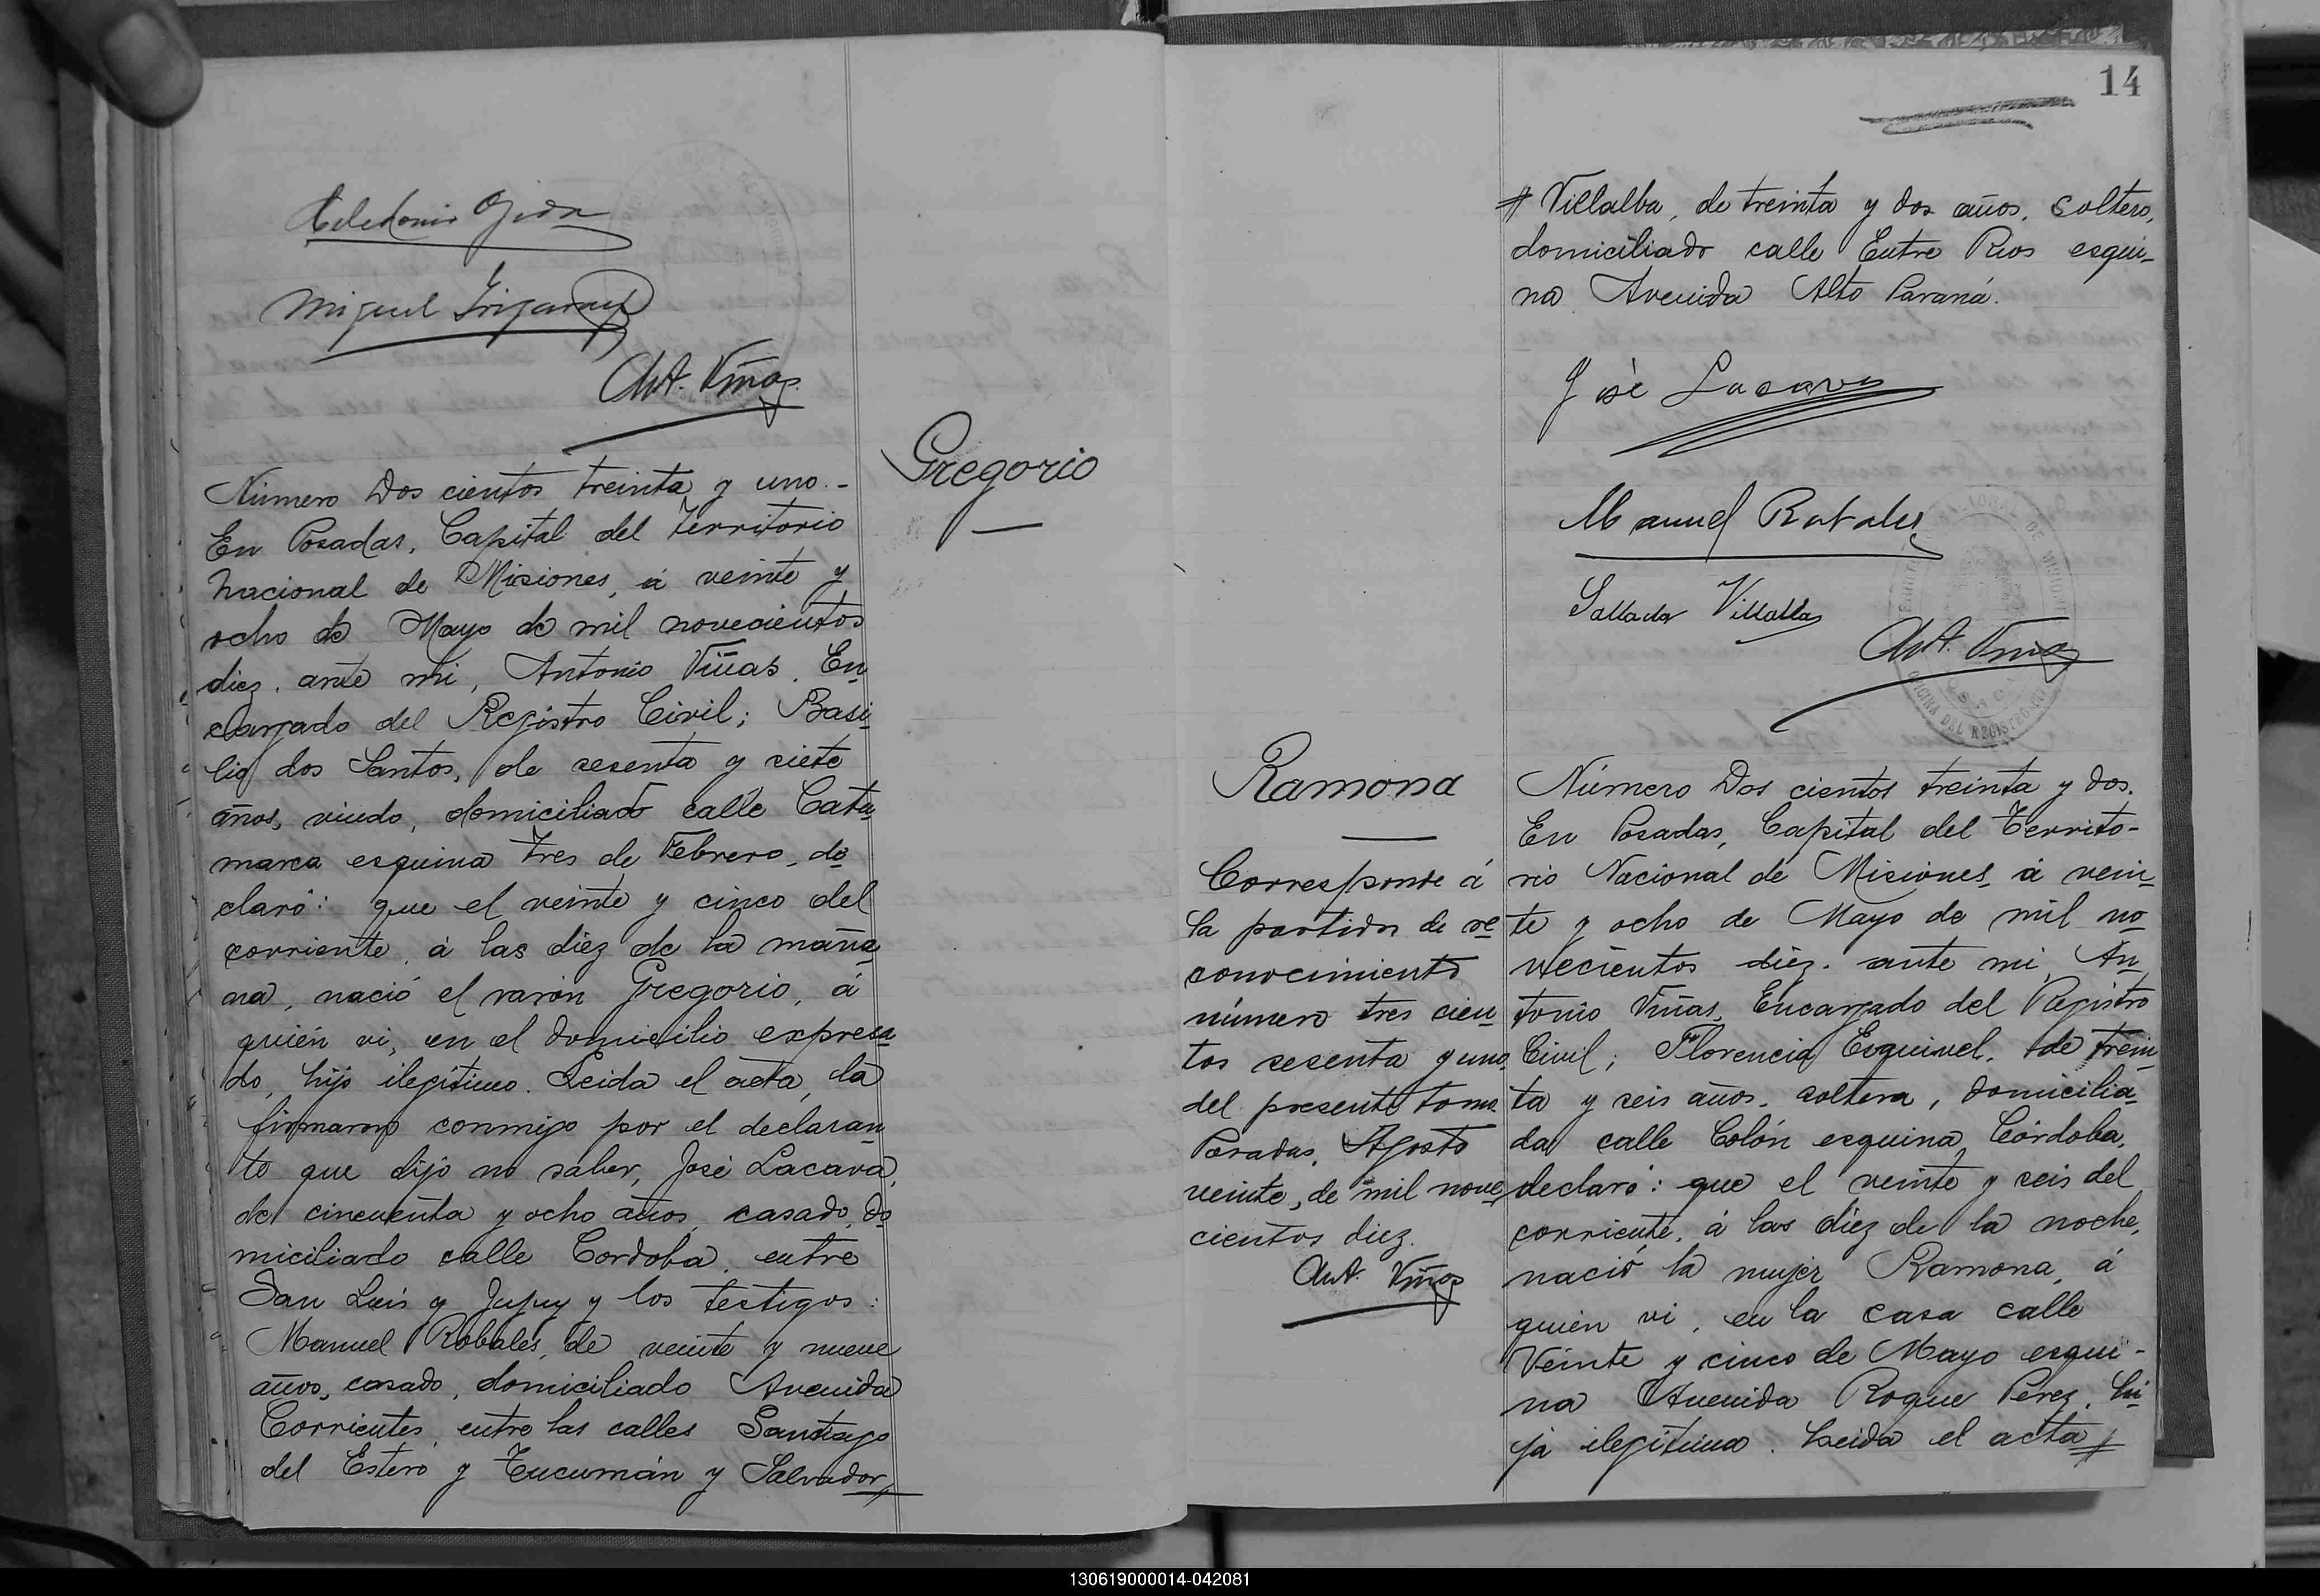 Celedonio Ojeda
Miguel Irigaray
Ant. Viñas
Gregorio
Número Dos cientos treinta y uno.-
En Posadas, Capital del Territorio
Nacional de Misiones, á veinte y
ocho de Mayo de mil novecientos
diez. ante mi, Antonio Viñas, En
cargado del Registro Civil; Basi
lio dos Santos, de sesenta y siete
años, viudo, domiciliado calle Cata
marca esquina Tres de Febrero, de
claró: que el veinte y cinco del
corriente, á las diez de la maña
na, nació el varón Gregorio, á
quién vi, en el domicilio expresa
do, hijo ilegítimo. Leida el acta, la
firmaron conmigo por el declaran
te que dijo no saber, José Lacava,
de cincuenta y ocho años, casado, do
miciliado calle Cordoba, entre
San Luis y Jujuy y los testigos:
Manuel Robales, de veinte y nueve
años, casado, domiciliado Avenida
Corrientes, entre las calles Santiago
del Estero y Tucumán y Salvador,
14
Villalba, de treinta y dos años, soltero,
domiciliado calle Entre Rios esqui-
na Avenida Alto Paraná.
José Lacava
Manuel Robales
Villalba
Ant. Viñas
OFICINA DEL REGISTRO
Ramona
Corresponde á
la partida de re
conocimiento
número tres cien
tos sesenta y uno,
del presente tomo.
Posadas, Agosto
veinte, de mil nove
cientos diez.
Ant. Viñas
Número Dos cientos treinta y dos.
En Posadas, Capital del Territo-
rio Nacional de Misiones, á vein
te y ocho de Mayo de mil no
vecientos diez. ante mi, An
tonio Viñas, Encargado del Registro
Civil; Florencia Esquivel, de trein
ta y seis años, soltera, domicilia
da calle Colón esquina Córdoba,
declaró: que el veinte y seis del
corriente, á las diez de la noche,
nació la mujer Ramona, á
quién vi, en la casa calle
Veinte y cinco de Mayo esqui-
na Avenida Roque Perez, hi
ja ilegítima. Leida el acta
130619000014-042081